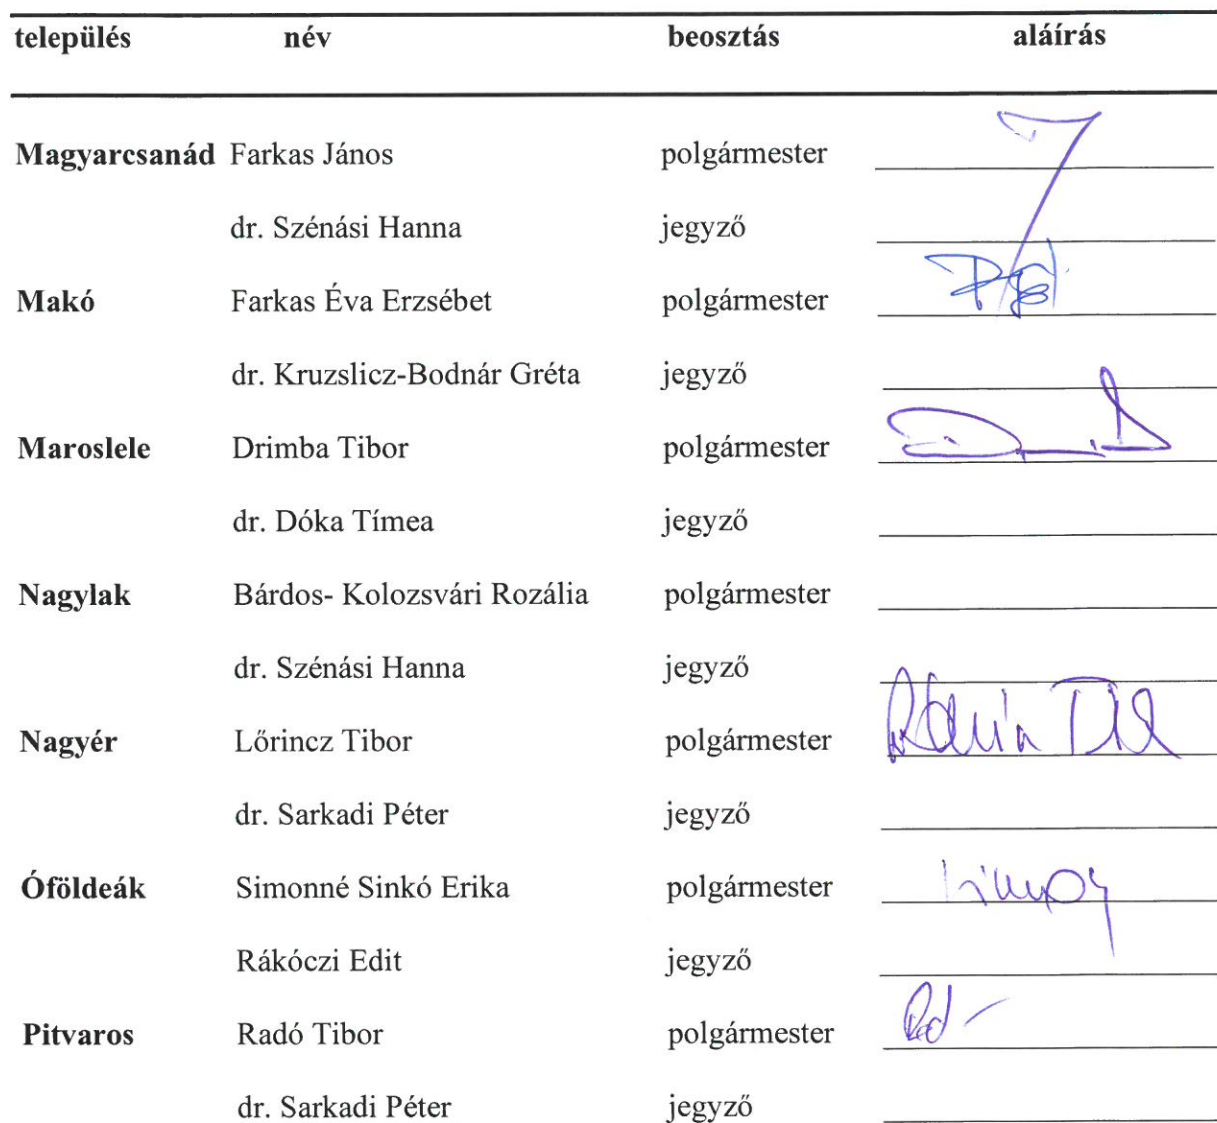 település név beosztás aláírás
Magyarcsanád Farkas János polgármester
dr. Szénási Hanna jegyző
Makó Farkas Éva Erzsébet polgármester
dr. Kruzslicz-Bodnár Gréta jegyző
Maroslele Drimba Tibor polgármester
dr. Dóka Tímea jegyző
Nagylak Bárdos- Kolozsvári Rozália polgármester
dr. Szénási Hanna jegyző
Nagyér Lőrincz Tibor polgármester
dr. Sarkadi Péter jegyző
Óföldeák Simonné Sinkó Erika polgármester
Rákóczi Edit jegyző
Pitvaros Radó Tibor polgármester
dr. Sarkadi Péter jegyző